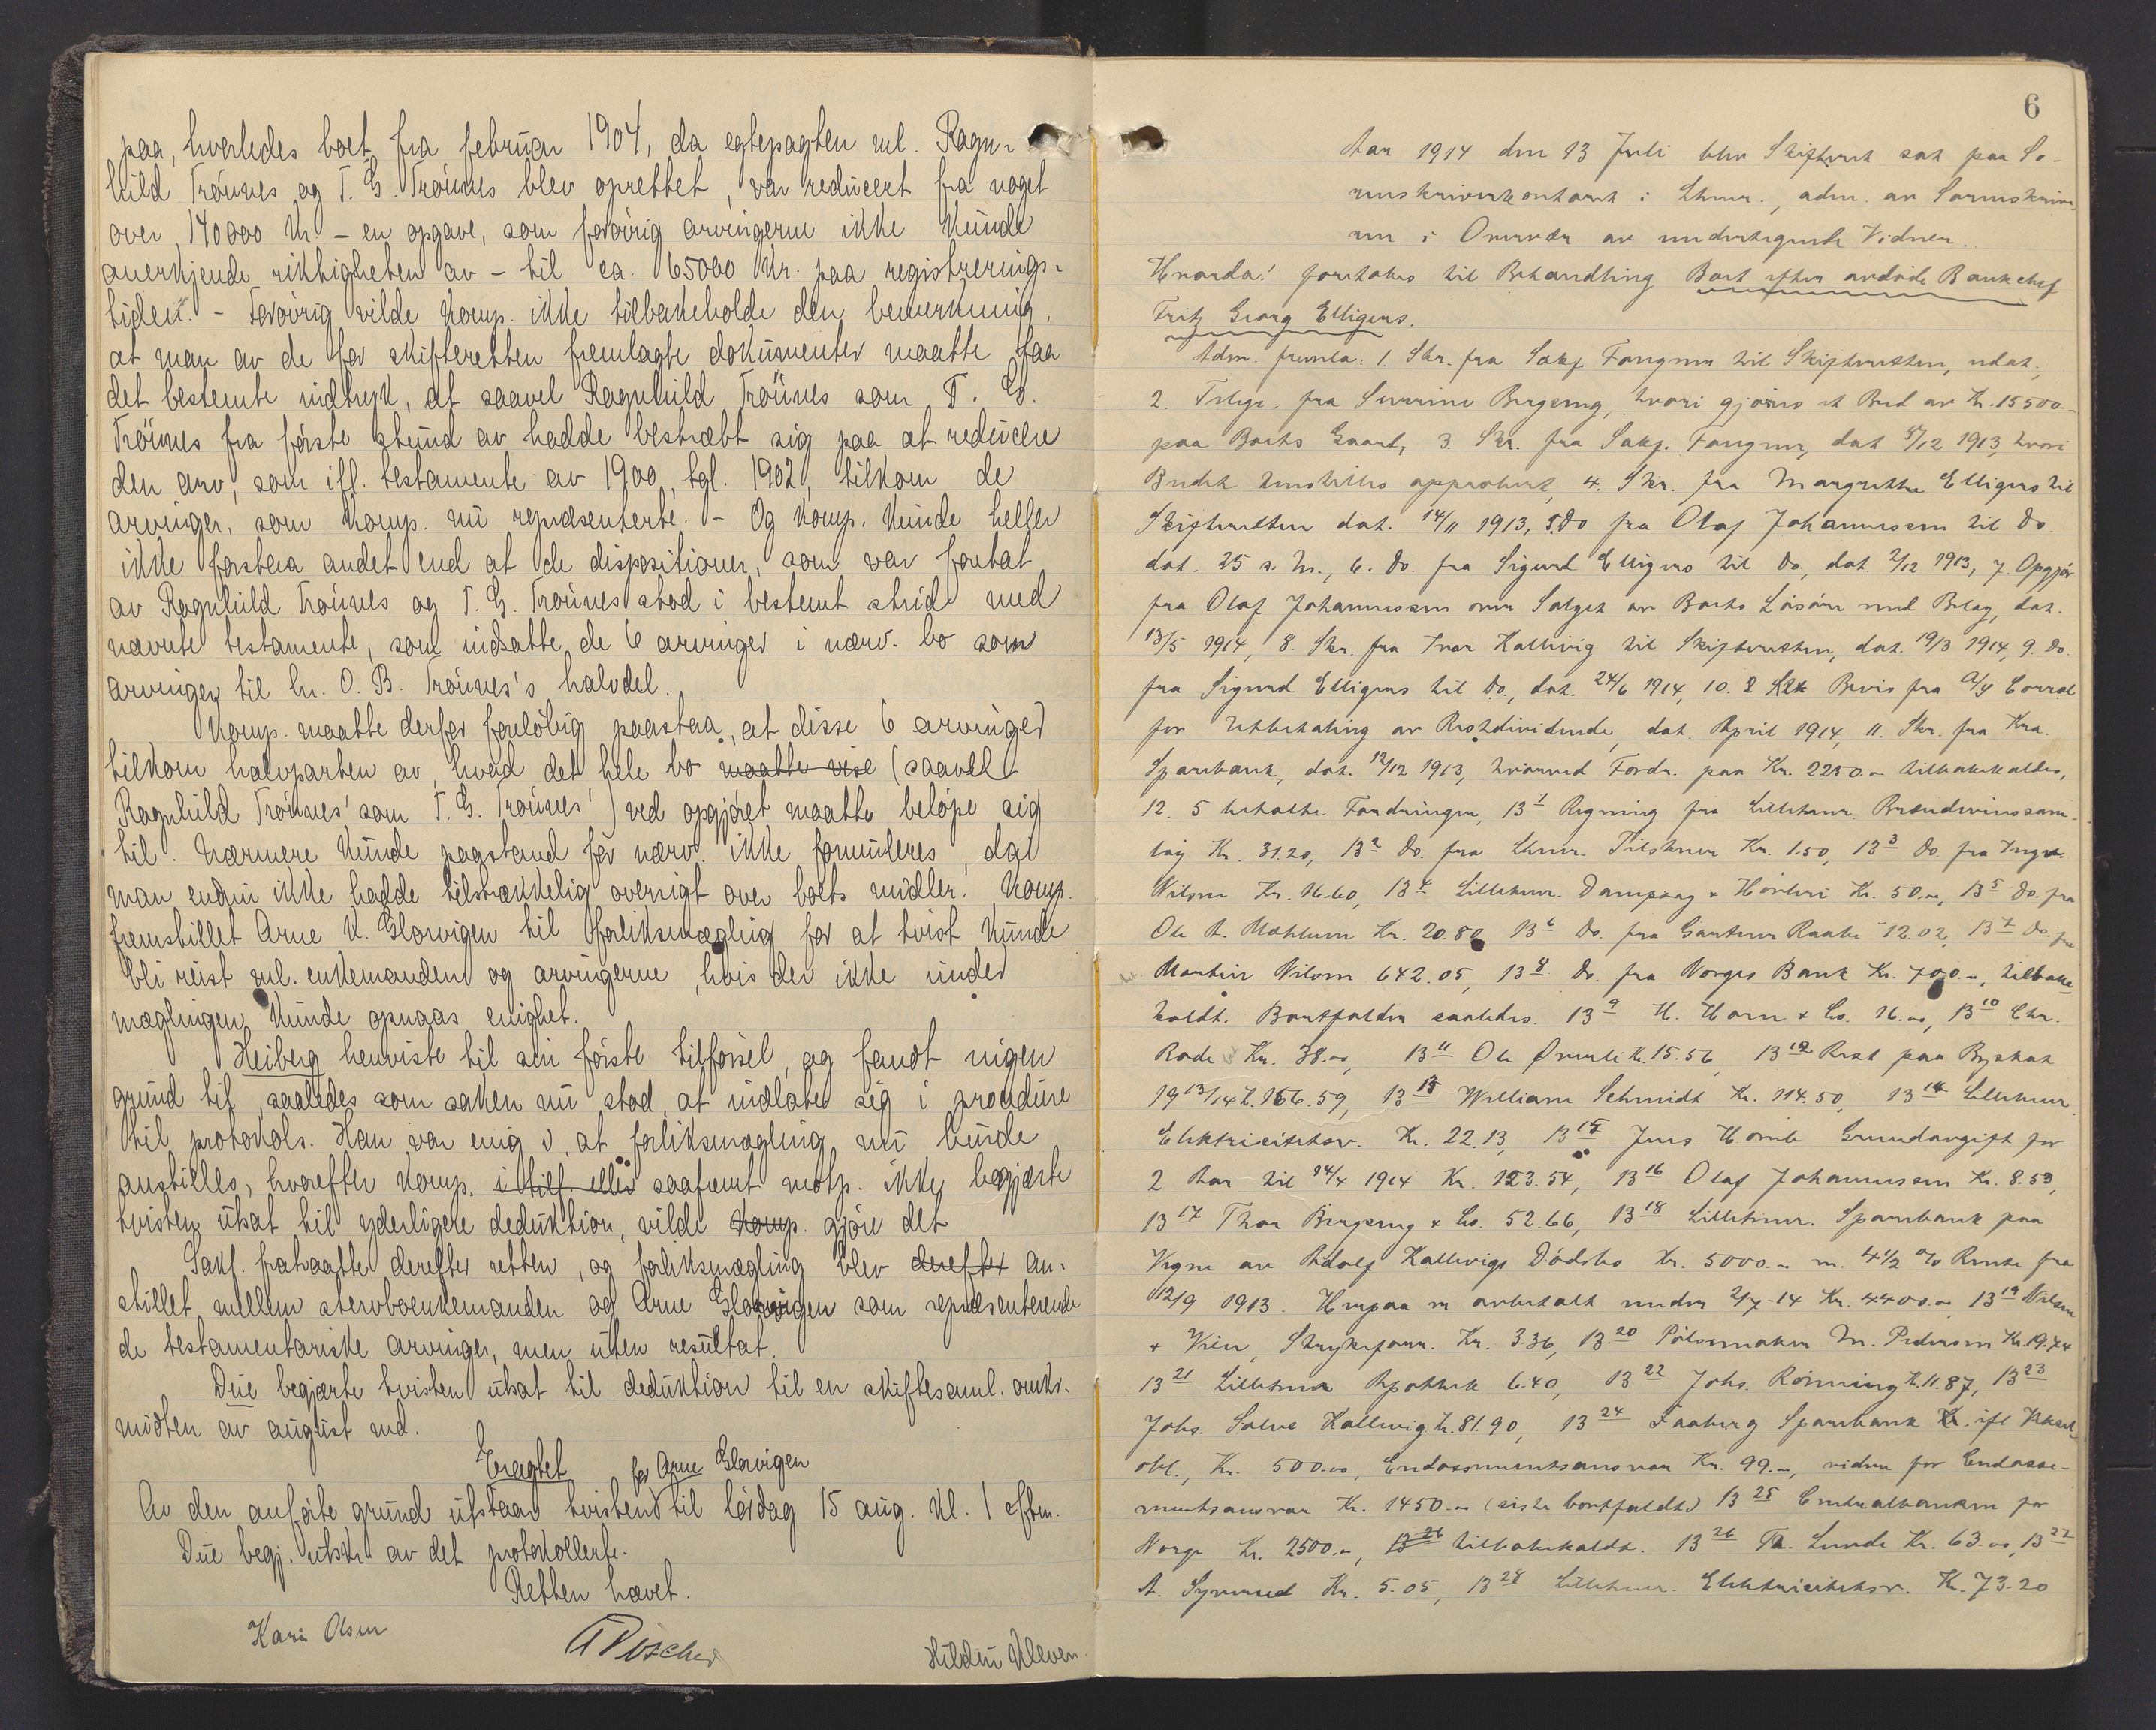 paa, hvorledes boet fra februar 1904, da egtepagten ml. Ragn-
hild Trønnes og T. G. Trønnes blev oprettet, var reducert fra noget
over 140000 Kr - en opgave, som forøvrig arvingerne ikke kunde
anerkjende rikktigheten av - til ca. 65000 Kr. paa registrerings-
tiden. - Forøvrig vilde komp. ikke tilbakeholde den bemerkning,
at man av de for skifteretten fremlagte dokumenter maatte faa
det bestemte indtryk, at saavel Ragnhild Trønnes som T. G.
Trønnes fra første stund av hadde bestræbt sig paa at reducere
den arv, som ifl. testamente av 1900, tgl. 1902, tilkom de
arvinger, som komp. nu repræsenterte. - Og komp. kunde heller
ikke forstaa andet end at de dispositioner, som var foretat
av Ragnhild Trønnes og T. G. Trønnes stod i bestemt strid med
nævnte testamente, som indsatte de 6 arvinger i nærv. bo som
arvinger til hr. O. B. Trønnes's halvdel.
Komp. maatte derfor foreløbig paastaa, at disse 6 arvinger
tilkom halvparten av, hvad det hele bo maatte vise (saavel
Ragnhild Trønnes' som T. G. Trønnes') ved opgjøret maatte beløpe sig
til. Nærmere kunde paastand for nærv. ikke formuleres, da
man endnu ikke hadde tilstrækkelig oversigt over boets midler. Komp.
fremstillet Arne K. Glørvigen til forliksmægling for at tvist kunde
bli reist ml. enkemanden og arvingerne, hvis der ikke under
mæglingen kunde opnaas enighet.
Heiberg henviste til sin første tilførsel, og fandt ingen
grund til, saaledes som saken nu stod, at indlate sig i procedure
til protokols. Han var enig i, at forliksmægling nu burde
anstilles, hvorefter komp. i tilf. eller saafremt motp. ikke begjærte
tvisten utsat til yderligere deduktion, vilde komp. gjøre det
Sakf. fratraatte derefter retten, og forliksmægling blev derefter an-
stillet mellem stervboenkemanden og Arne Glørvigen som repræsenterende
de testamentariske arvinger, men uten resultat.
Due begjærte tvisten utsat til deduktion til en skiftesaml. omkr.
midten av august md.
Eragtet for Arne Glørvigen
Av den anførte grund utstaar tvisten til lørdag 15 aug. kl. 1 eftm.
Due begj. utskr. av det protokollerte.
Retten hævet.
Kari Olsen
Hildur Kleven
6
Aar 1914 den 13 Juli blev Skifteret sat paa So-
renskriverkontoret i Lhmr., adm. av Sorenskrive-
ren i Overvær av undertegnede Vidner.
Hvorda: foretokes til Behandling Boet efter avdøde Bankchef
Fritz Georg Elligers.
Adm. fremla: 1. Skr. fra Sakf. Fougner til Skifteretten, udat.,
2. Telegr. fra Severine Bergseng, hvori gjøres et Bud av Kr. 15500.-
paa Boets Gaard, 3. Skr. fra Sakf. Fougner, dat 5/12 1913, hvori
Budet henstilles approbert, 4. Skr. fra Margrethe Elligers til
Skifteretten dat. 14/11 1913, 5. Do fra Olaf Johannessen til Do.
dat. 25 s. M., 6. Do. fra Sigurd Elligers til Do., dat. 2/12 1913, 7. Opgjør
fra Olaf Johannessen over Salget av Boets Løsøre med Bilag, dat.
13/5 1914, 8. Skr. fra Ivar Hallvig til Skifteretten, dat. 19/3 1914, 9. Do.
fra Sigurd Elligers til Do., dat. 24/6 1914, 10. 2 Bevis fra A/S Corral
for Utbetaling av Restdividende, dat. April 1914, 11. Skr. fra Kra.
Sparebank, dat. 12/12 1913, hvorved Fordr. paa Kr. 2250.- tilbakekaldes,
12. 5 betalte Fordringer, 13¹ Regning fra Lillehmr. Brændevinssam-
lag Kr. 31.20, 13² Do. fra Lhmr. Tilskuer Kr. 1.50, 13³ Do. fra Ingv.
Nilsen Kr. 16.60, 13⁴ Lillehmr. Dampsag & Høvleri Kr. 50.-, 13⁵ Do. fra
Ole A. Mæhlum Kr. 20.80 13⁶ Do. fra Gartner Raabe - 12.02, 13⁷ Do. fra
Martin Nilsen 642.05, 13⁸ Do. fra Norges Bank Kr. 700.-, tilbake-
kaldt. Bortfalder saaledes. 13⁹ H. Horn & Co. 16.00, 13¹⁰ Chr.
Rode Kr. 38.00, 13¹¹ Ole Øverli Kr. 15.56, 13¹² Rest paa Byskat
1913/14 Kr. 166.59, 13¹³ William Schmidt Kr. 114.50, 13¹⁴ Lillehmr.
Elektricitetsv. Kr. 22.13, 13¹⁵ Jens Hovle Grundavgift for
2 Aar til 14/4 1914 Kr. 123.54, 13¹⁶ Olaf Johannessen Kr. 8.53,
13¹⁷ Thor Bergseng & Co. 52.66, 13¹⁸ Lillehmr. Sparebank paa
Vegne av Adolf Hallvigs Dødsbo Kr. 5000.- m. 4 1/2 % Rente fra
12/9 1913. Herpaa er avbetalt under 2/7-14 Kr. 4400.- 13¹⁹ Nilsen
& Vien, Strykeforr. Kr. 3.36, 13²⁰ Pølsemaker M. Pedersen Kr. 19.74
13²¹ Lillehmr Apothek 6.40, 13²² Johs. Rønning Kr. 11.87, 13²³
Johs. Salve Kallevig Kr. 81.90, 13²⁴ Faaberg Sparebank Kr. ifl Veksel-
obl., Kr. 500.00, Endossementsansvar Kr. 99.-, videre for Endosse-
mentsansvar Kr. 1450.- (siste bortfaldt) 13²⁵ Centralbanken for
Norge Kr. 2500.-, 13²⁶ tilbakekaldt. 13²⁶ Th. Lunde Kr. 63.00, 13²⁷
A. Kr. 5.05, 13²⁸ Lillehmr. Elektricitetsv. Kr. 73.20